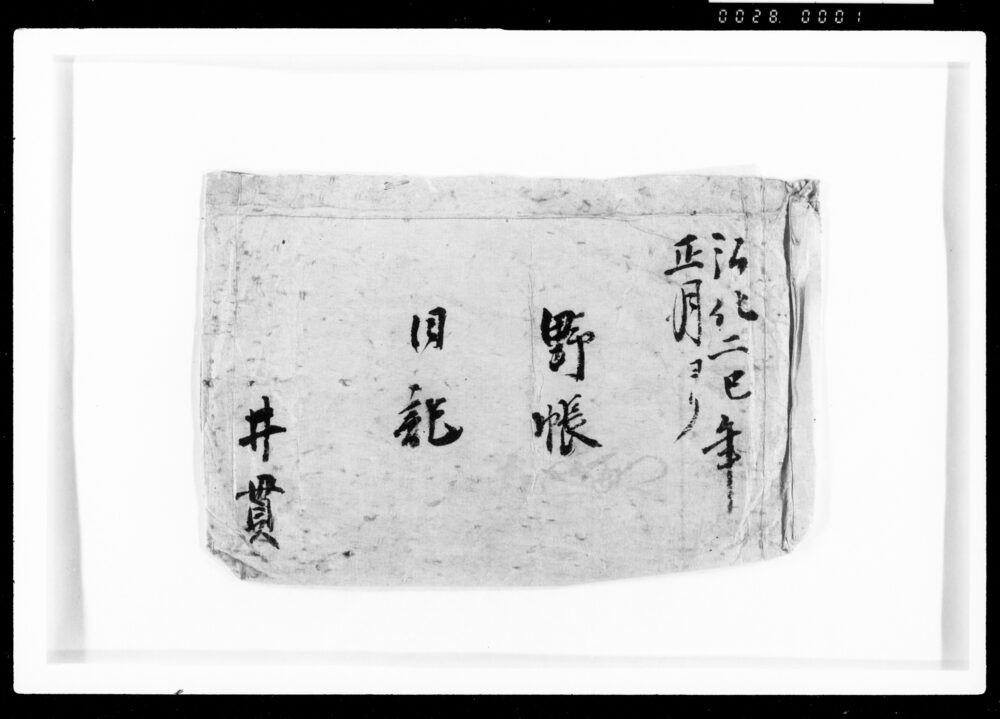 0028. 0001
弘化二巳年
正月ヨリ
野帳
日記
井貫